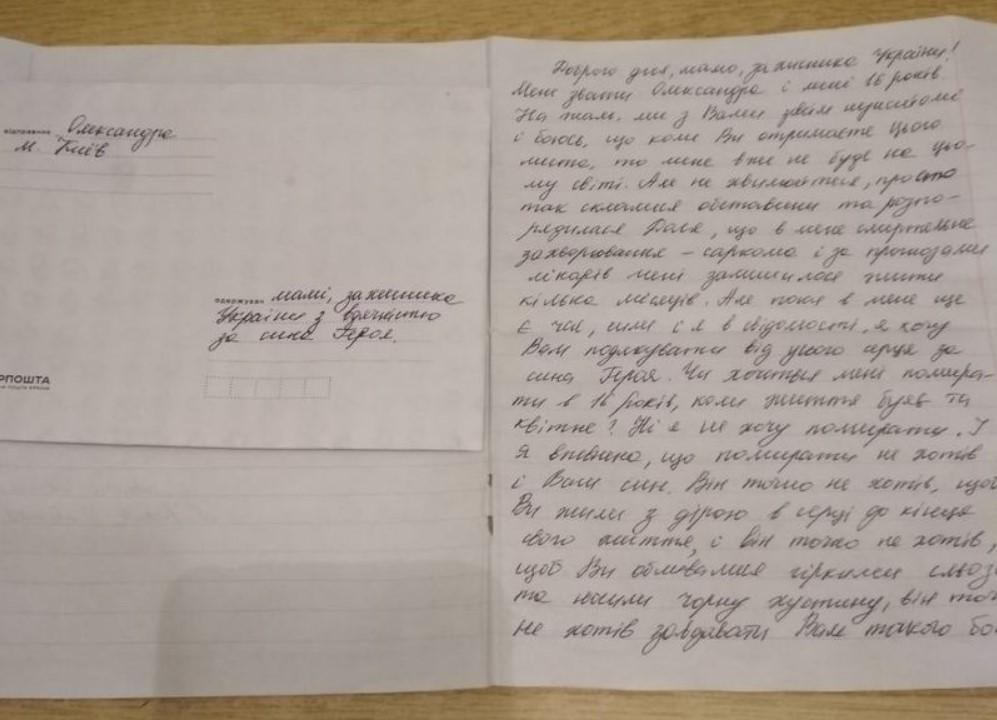 відправник Олександра
м. Київ
одержувач мамі, захисника
України з вдячністю
за сина Героя.
РПОШТА
Доброго дня, мамо, захисника України!
Мене звати Олександра і мені 16 років.
На жаль, ми з Вами зовсім
і боюсь, що коли Ви отримаєте цього
листа, то мене вже не буде на цьо-
му світі. Але не хвилюйтеся, просто
так склалися обставини та розпо-
рядилася Доля, що в мене смертельне
захворювання – саркома і за прогнозами
лікарів мені залишилося жити
кілька місяців. Але поки в мене ще
є час, сили і я в свідомості, я хочу
Вам подякувати від усього серця за
сина Героя. Чи хочеться мені помира-
ти в 16 років, коли життя буяє та
квітне? Ні я не хочу помирати. І
я впевнена, що помирати не хотів
і Ваш син. Він точно не хотів, щоб
Ви жили з дірою в серці до кінця
свого життя, і він точно не хотів,
щоб Ви обливалися гіркими сльоз
та носили чорну хустину, він точ
не хотів завдавати Вам такого бо